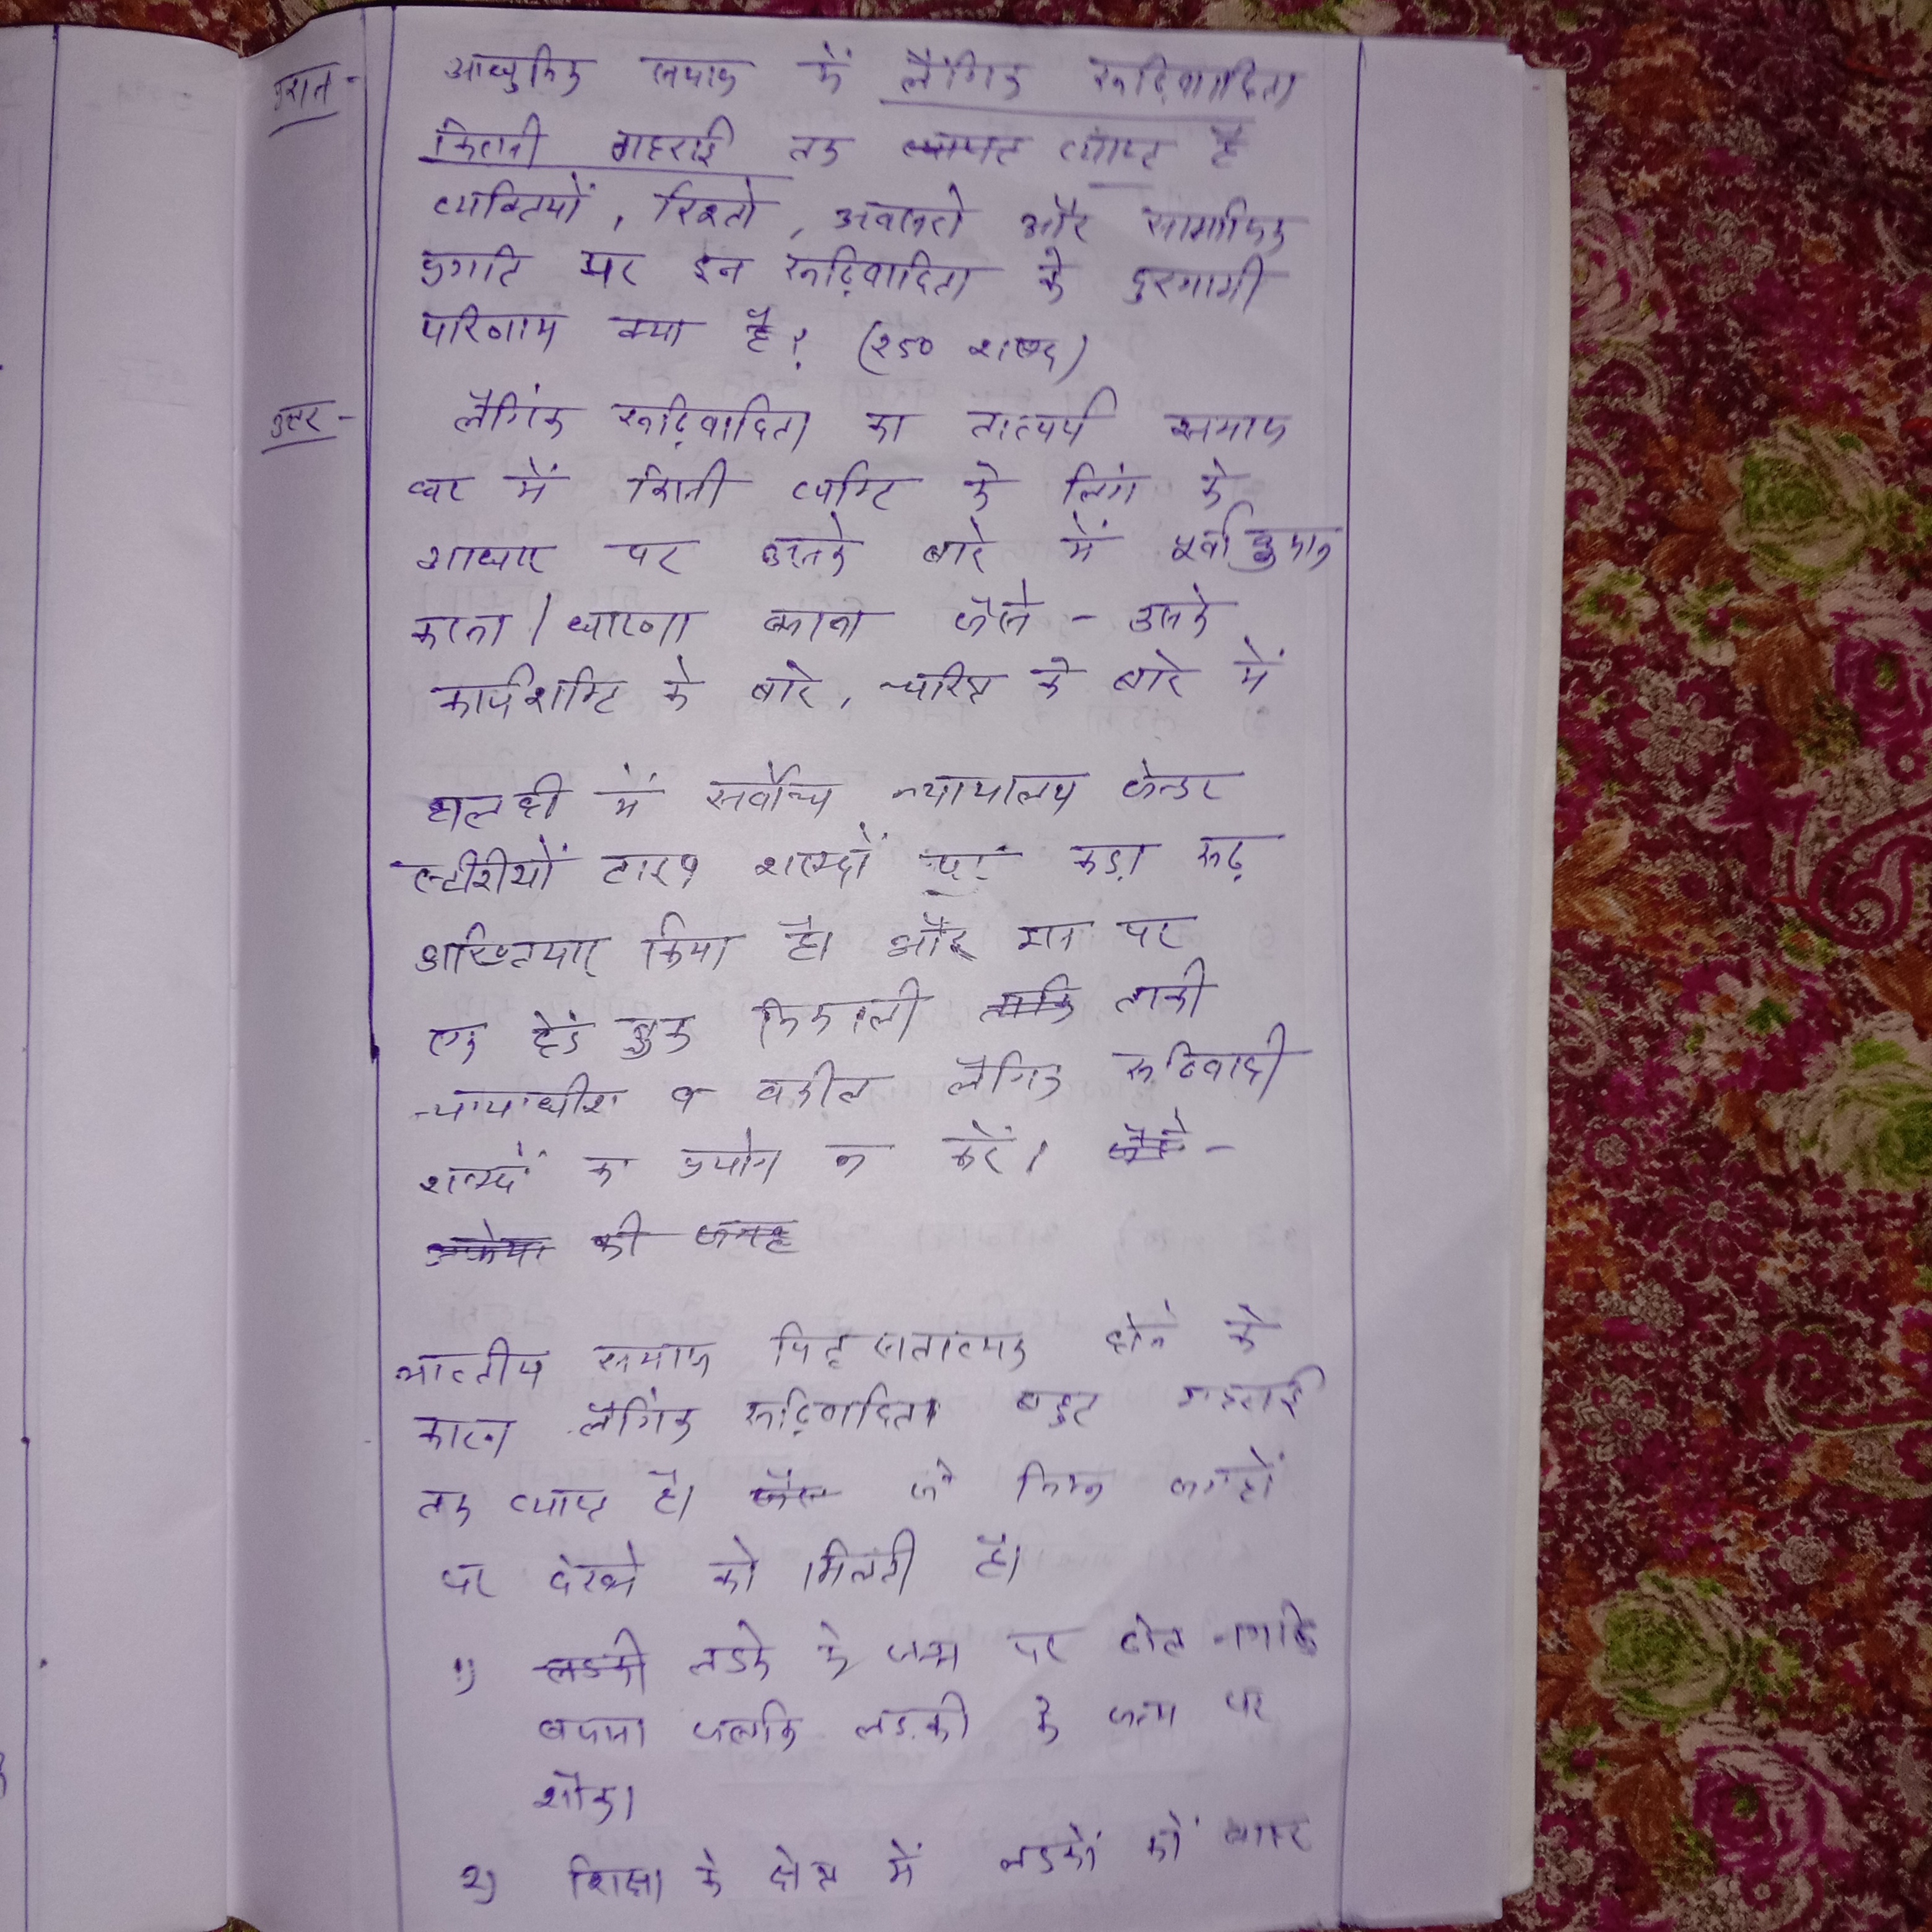 प्रश्न- आधुनिक समाज में लैंगिक रूढ़िवादिता
कितनी गहराई तक व्याप्त है
व्यक्तियों, रिश्तो, अवसरो और सामाजिक
प्रगति पर इन रूढ़िवादिता के दुरगामी
परिणाम क्या है? (250 शब्द)
उत्तर- लैगिंक रूढ़िवादिता का तात्पर्य समाज
घर में किसी व्यक्ति के लिंग के
आधार पर उसके बारे में पूर्वानुमान
करना / धारणा बनाना जैसे - उसके
कार्यशक्ति के बारे, चरित्र के बारे में
हाल ही में सर्वोच्च न्यायालय जेन्डर
स्टीरीयों टाइप शब्दों पर कड़ा रूढ़
अख्तियार किया है। और इस पर
एक हेडं बुक निकाली ताकी
न्यायाधीश व वकील लैगिक रूढिवादी
शब्दों का प्रयोग न करें। जैसे -
की जगह
भारतीय समाज पितृसतात्मक होने के
कारण लैगिंक रूढ़िवादिता बहुत गहराई
तक व्याप्त है। जैसे जो निम्न जगहों
पर देखने को मिलती है।
1) लडकी लडके के जन्म पर ढोल नगाडे
बजाना जबकि लडकी के जन्म पर
शौक।
2) शिक्षा के क्षेत्र में लडकों को बाहर